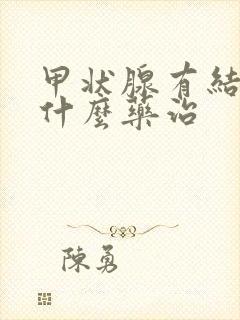 甲状腺有結
什麼藥治
陳勇